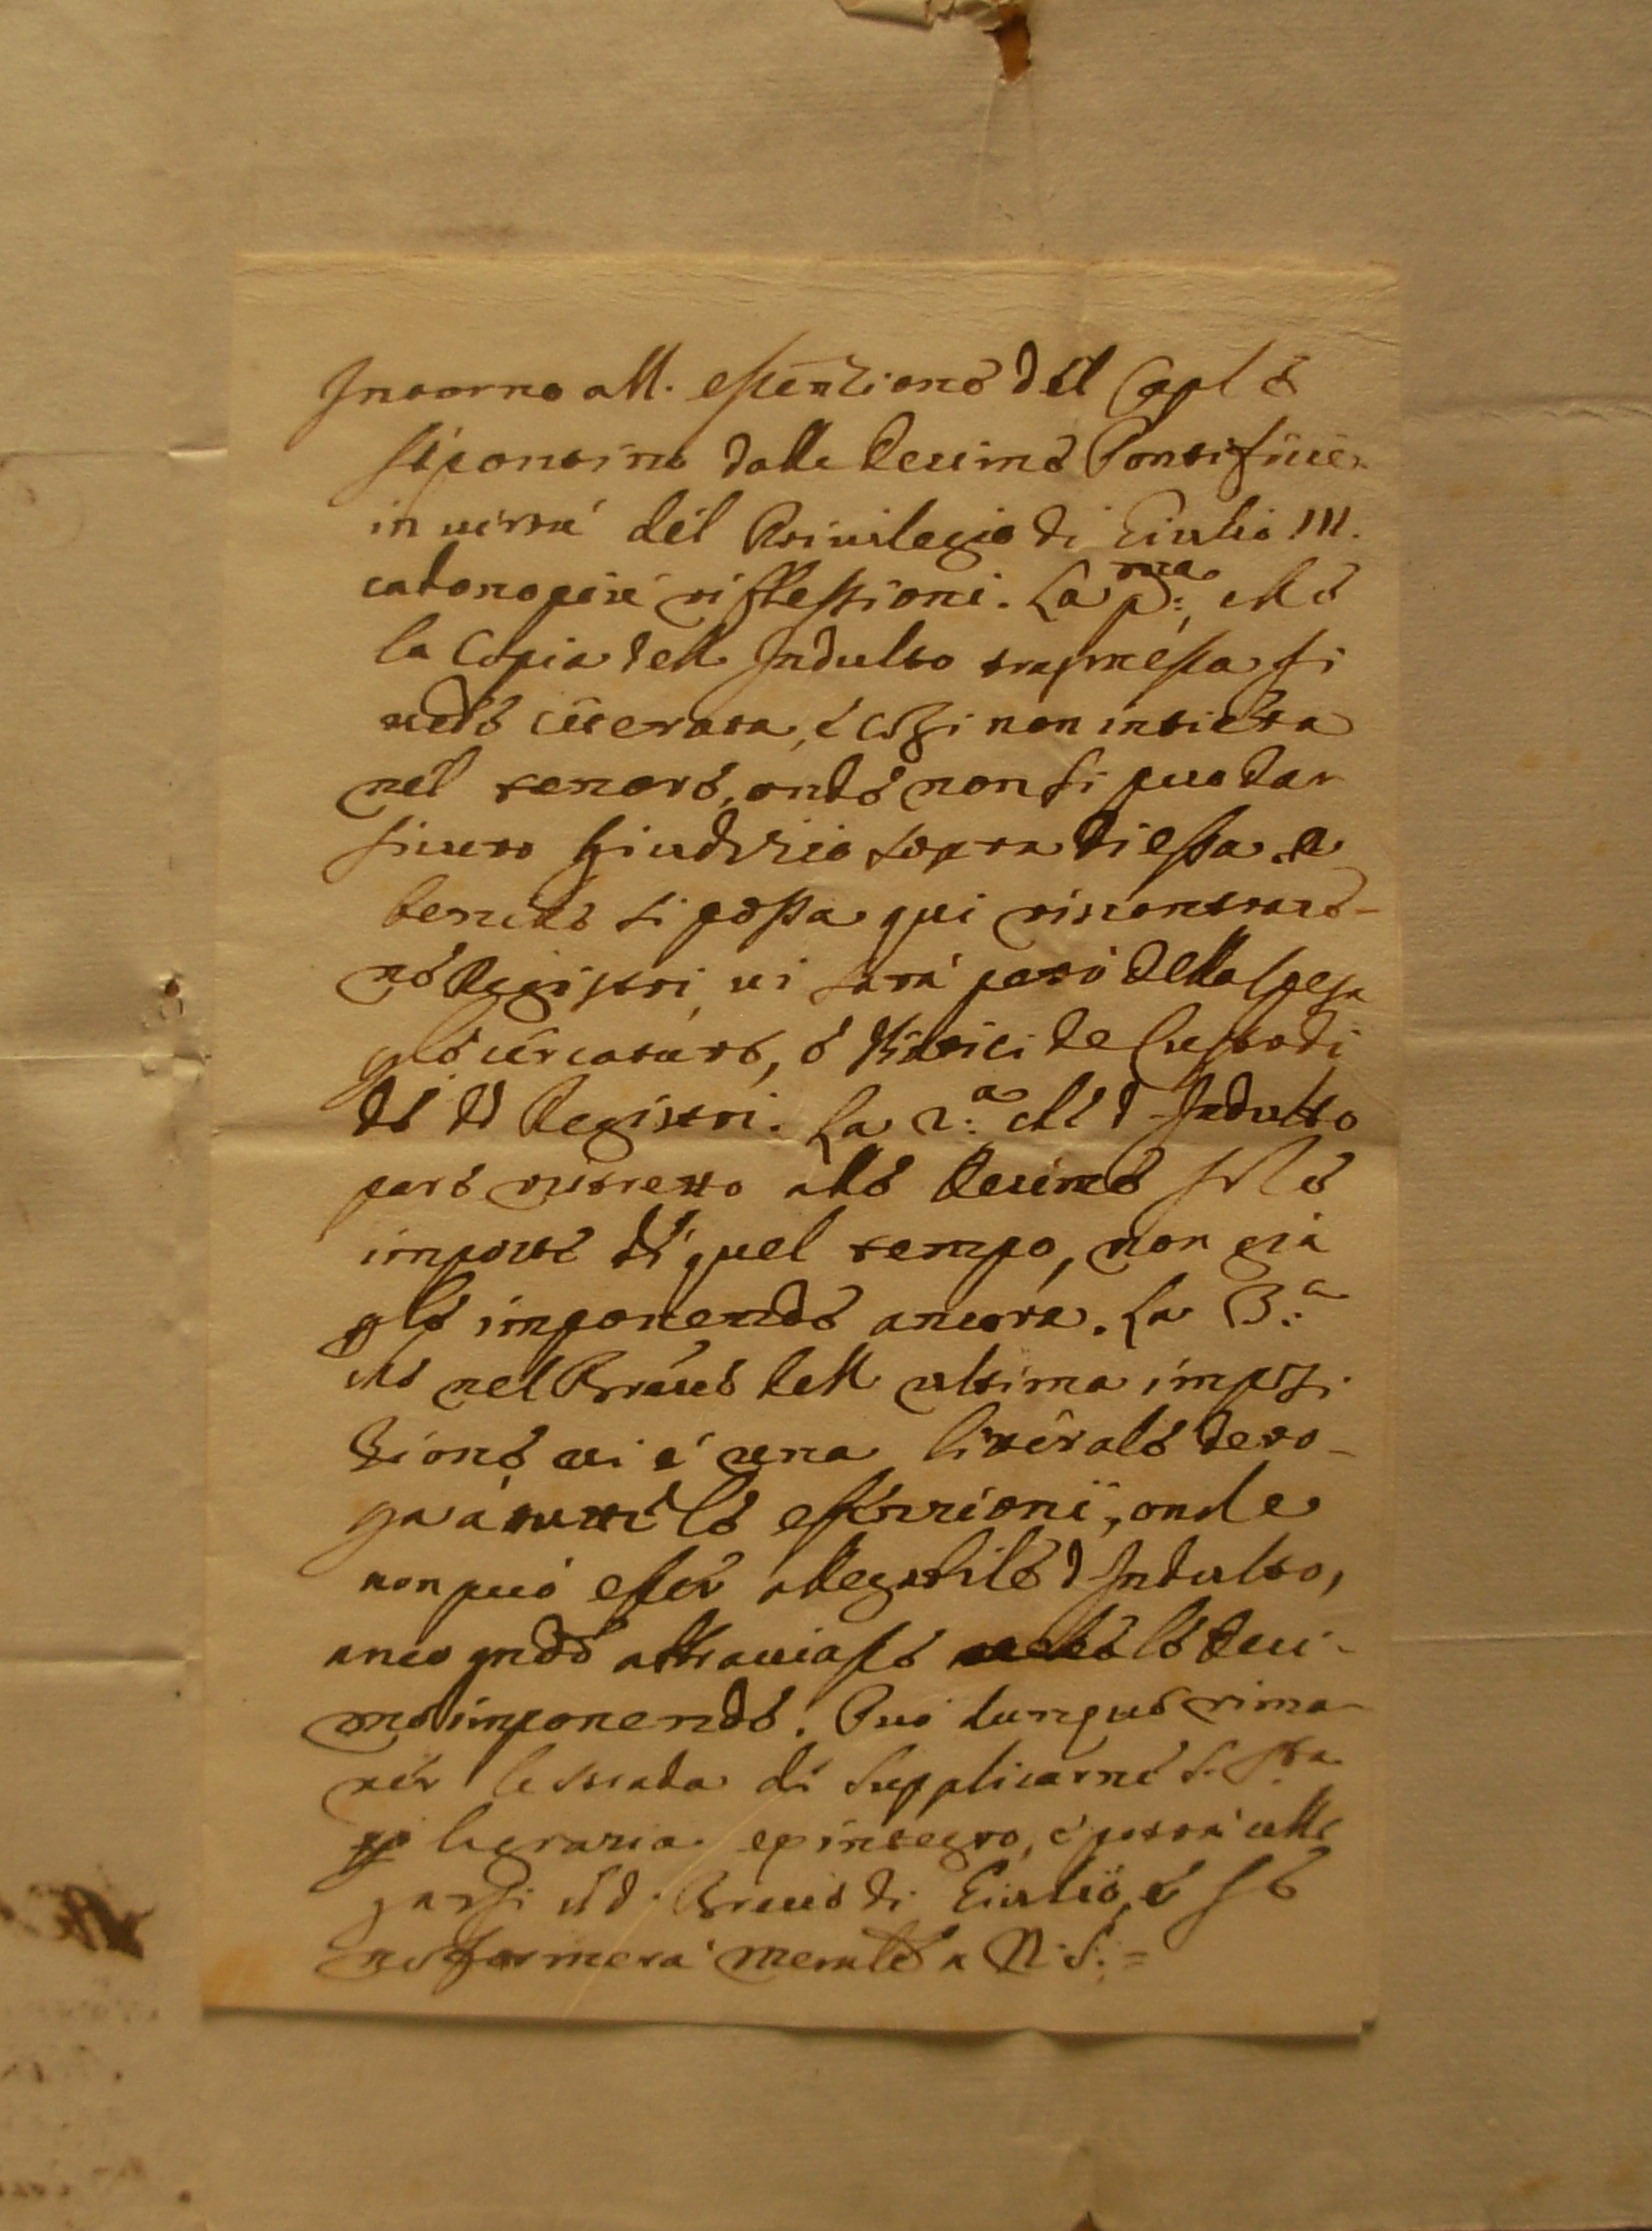 Intorno all' essentione del Caplo
Sipontino dalle decime Pontificie
in uirtù del Priuilegio di Giulio III.
cadono più riflessioni. La pma:, che
la Copia dell Indulto trasmessa si
uede ceterata, e così non intiera
nel tenore, onde non si può dar
sicuro giudizio sopra di essa e
benche si possa qui riscontrare
ne Registri, ui sarà però della spesa
ple cercature, e de Custodi
de dd Registri. La 2:a che d Indulto
pare ristretto alle decime sole
imposte di quel tempo, non già
ple imponende ancora. La 3:a
che nel Breue dell ultima imposi
zione ui è una litterale dero-
ga à tutte le essenzioni, onde
non può esser allegabile d Indulto,
anco qndo abbraciasse le deci-
me imponende. Può dunque rima
ner la strada di supplicarne S. Sta
p la grazia ex integro, e potrà alle
garsi il d Breue di Giulio, e se
ne formerà Memle a N. S. =